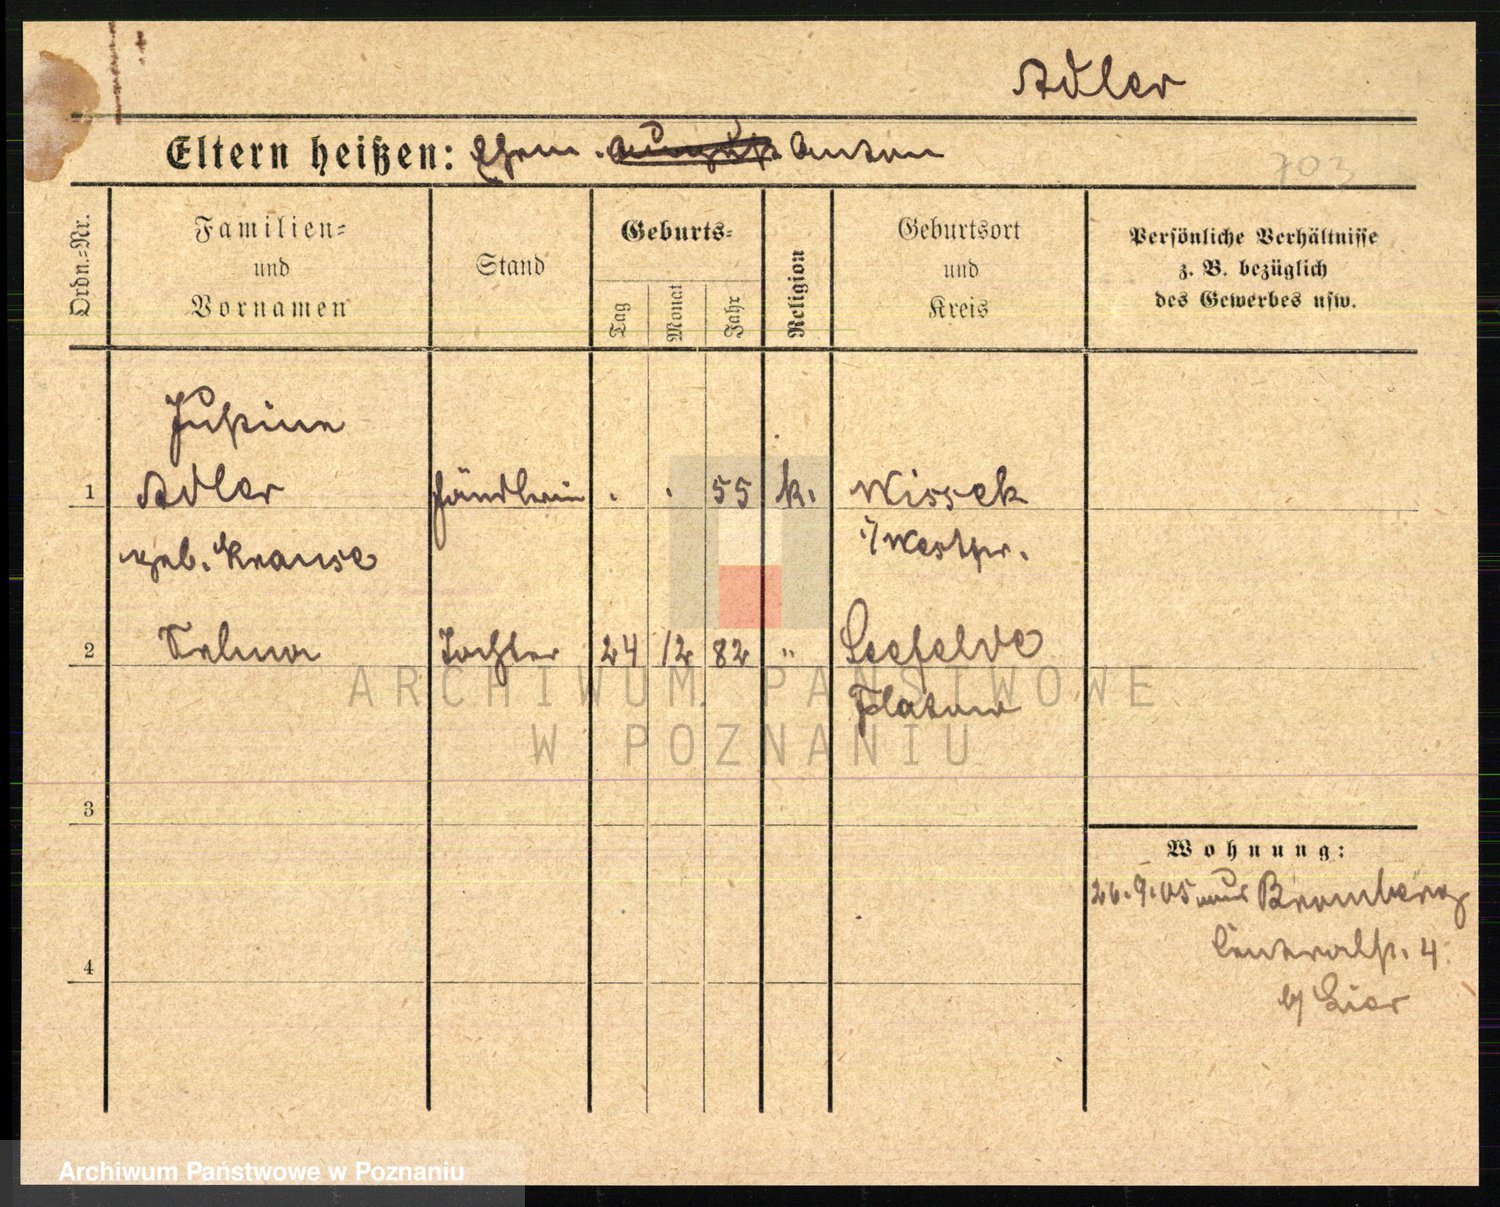 Adler
Eltern heißen: Ehem. August Anton
703
Ordn.-Nr.
Familien-
und
Vornamen
Stand
Geburts-
Tag
Monat
Jahr
Religion
Geburtsort
und
Kreis
Persönliche Verhältnisse
z. B. bezüglich
des Gewerbes usw.
Justine
1 Adler Händlerin . . 55 k. Wissek
geb. Krause i/Westpr.
2 Selma Tochter 24 12 82 " Seefelde
Flatow
3
Wohnung:
26.9.05 aus Bromberg
4
4.
b/
ARCHIWUM PAŃSTWOWE
W POZNANIU
Archiwum Państwowe w Poznaniu